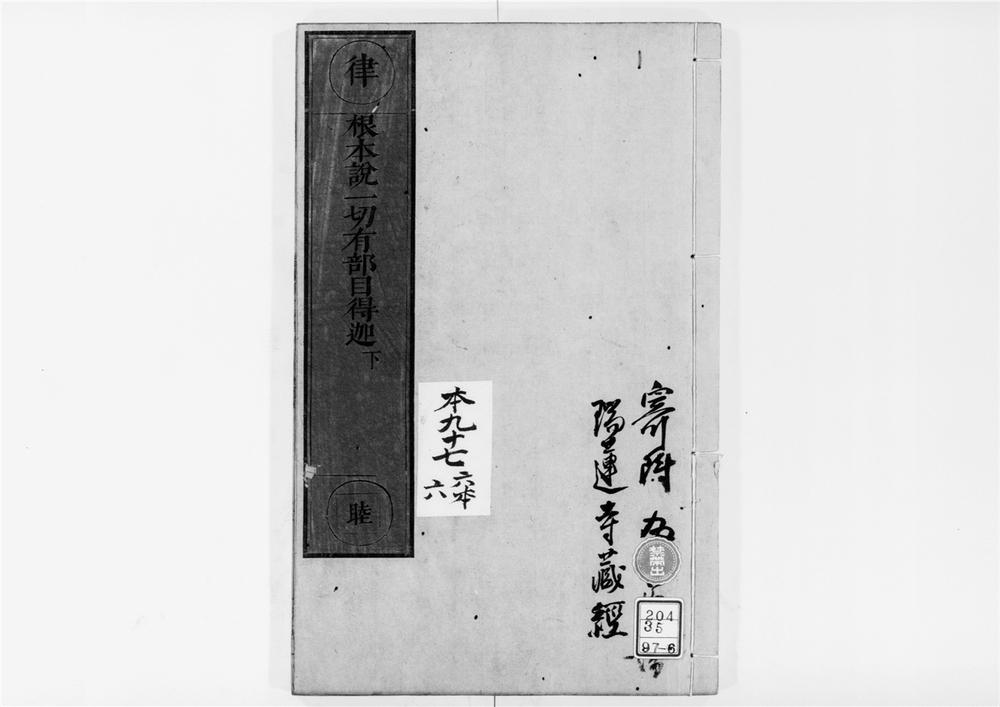 寄附
瑞蓮寺藏經
禁帶出
204
35
97-6
本九十七
六本
六
律
根本說一切有部目得迦 下
睦